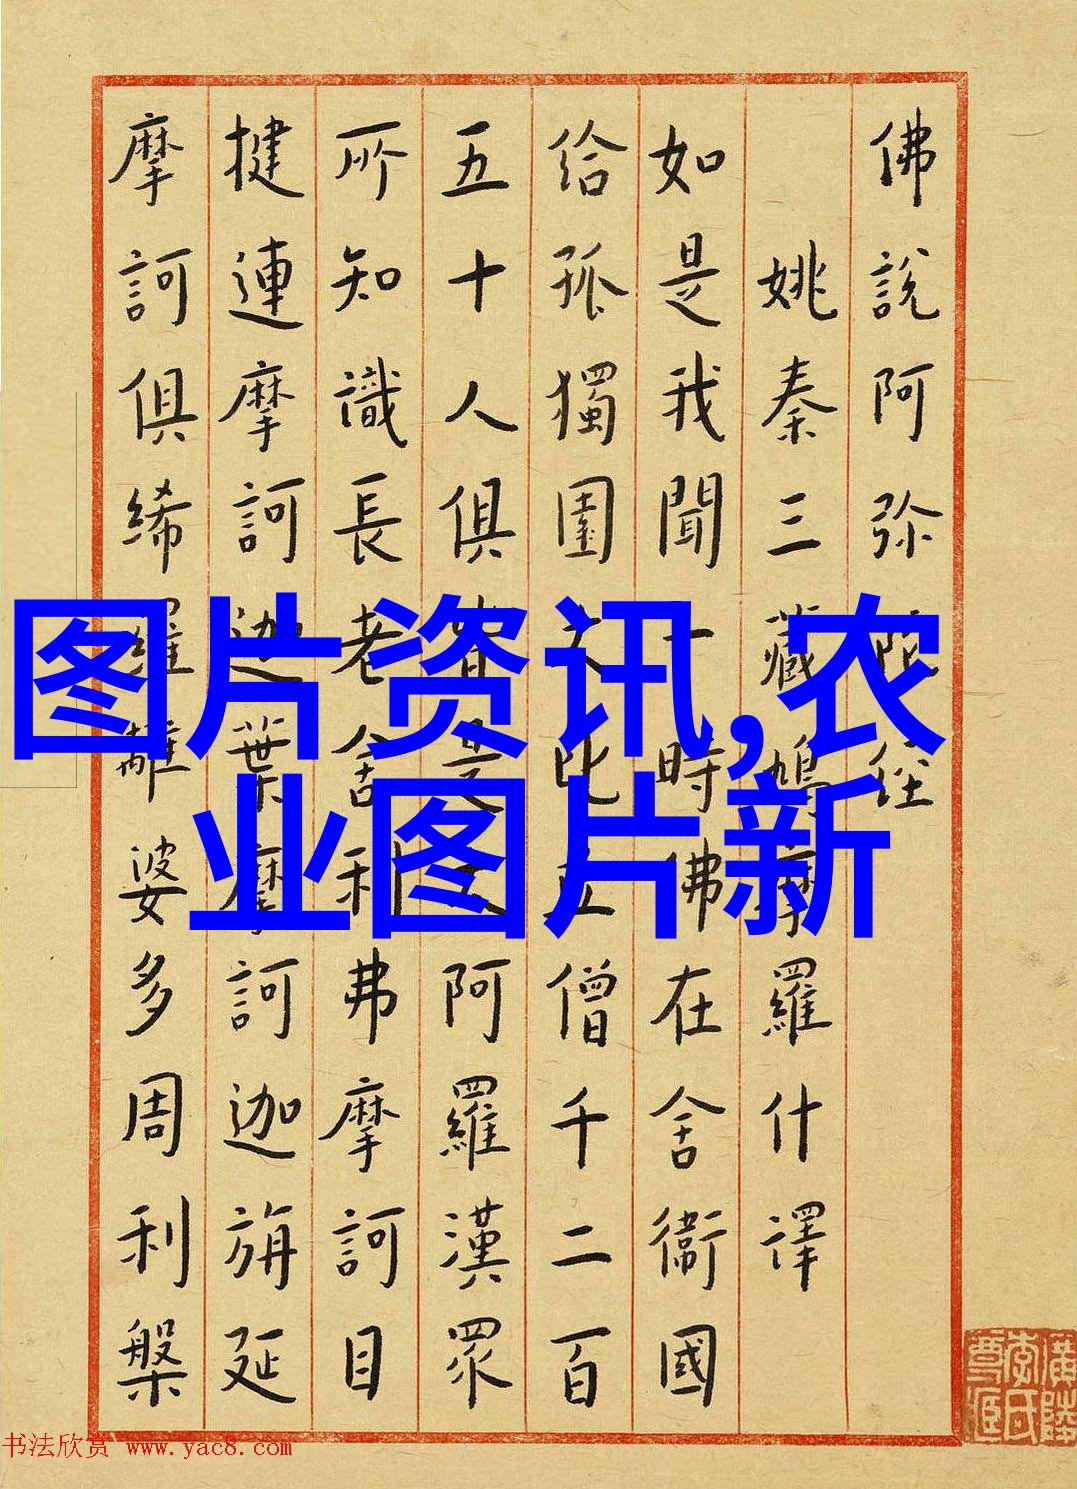 佛說阿弥陀经
姚秦三藏鳩摩羅什譯
如是我聞一時佛在舍衞國
给孤獨園大比丘僧千二百
五十人俱皆是大阿羅漢眾
所知識長老舍利弗摩訶目
揵連摩訶迦葉摩訶迦旃延
摩訶俱絺羅離婆多周利槃
图片资讯,农
业图片新
书法欣赏 www.yac8.com